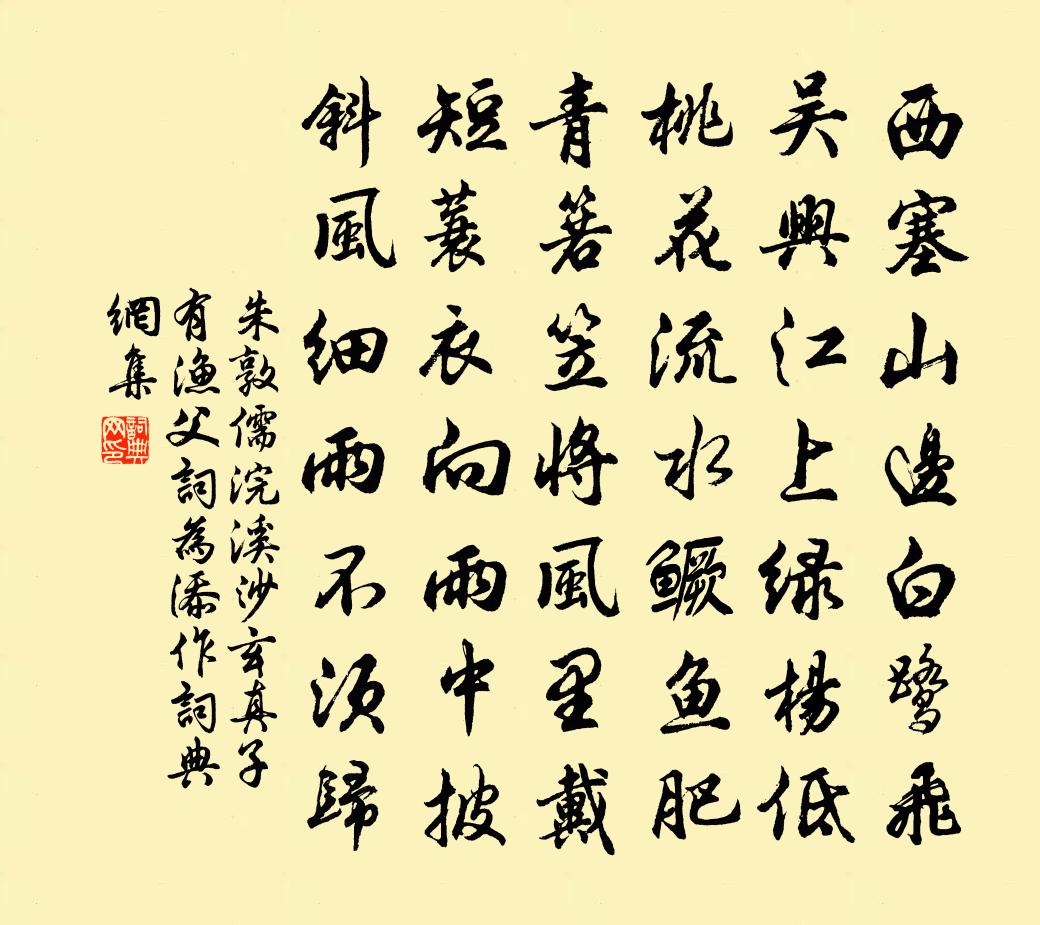 西塞山邊白鹭飛
吴興江上绿楊低
桃花流水鳜鱼肥
青箬笠將風里戴
短蓑衣向雨中披
斜風细雨不須歸
朱敦儒浣溪沙玄真子
有漁父詞為添作詞典
網集
詞典
网印